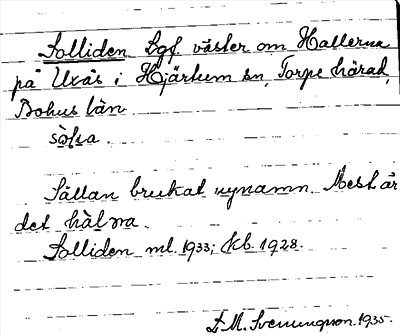 Solliden Lgf väster om Hallerna
på Uxås i Hjärtum sn, Torpe härad,
Bohus län
Sällan brukat nynamn. Mest är
det
Solliden ml. 1933; kb. 1928.
D. M. Svenungsson. 1935.